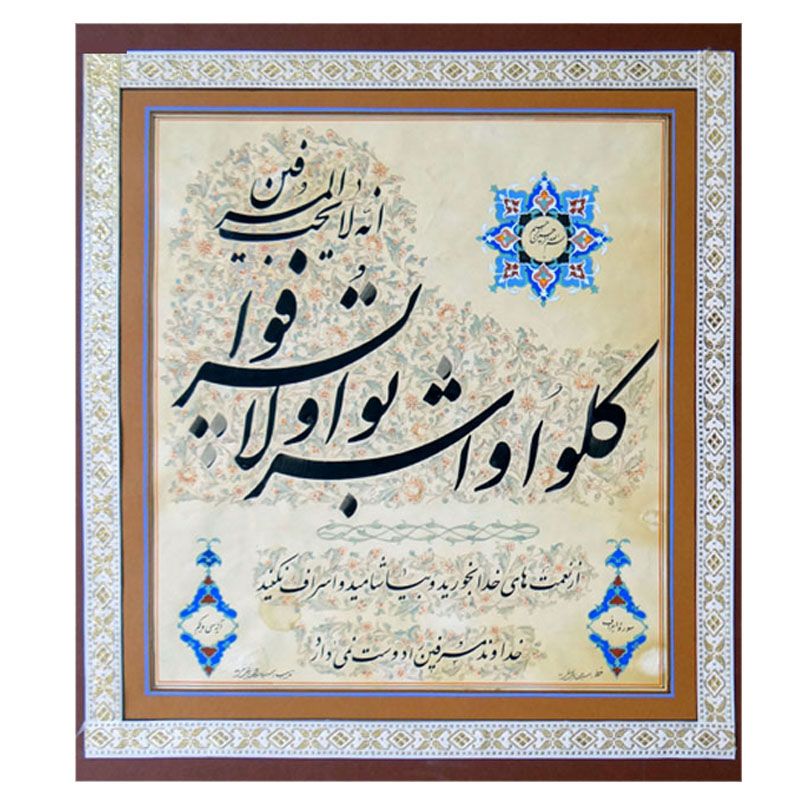 بسم الله الرحمن الرحیم
کلوا واشربوا ولا تسرفوا
انه لا یحب المسرفین
از نعمت های خدا بخورید و بیاشامید و اسراف نکنید
خداوند مسرفین را دوست نمی دارد
سوره اعراف
آیه سی و یکم